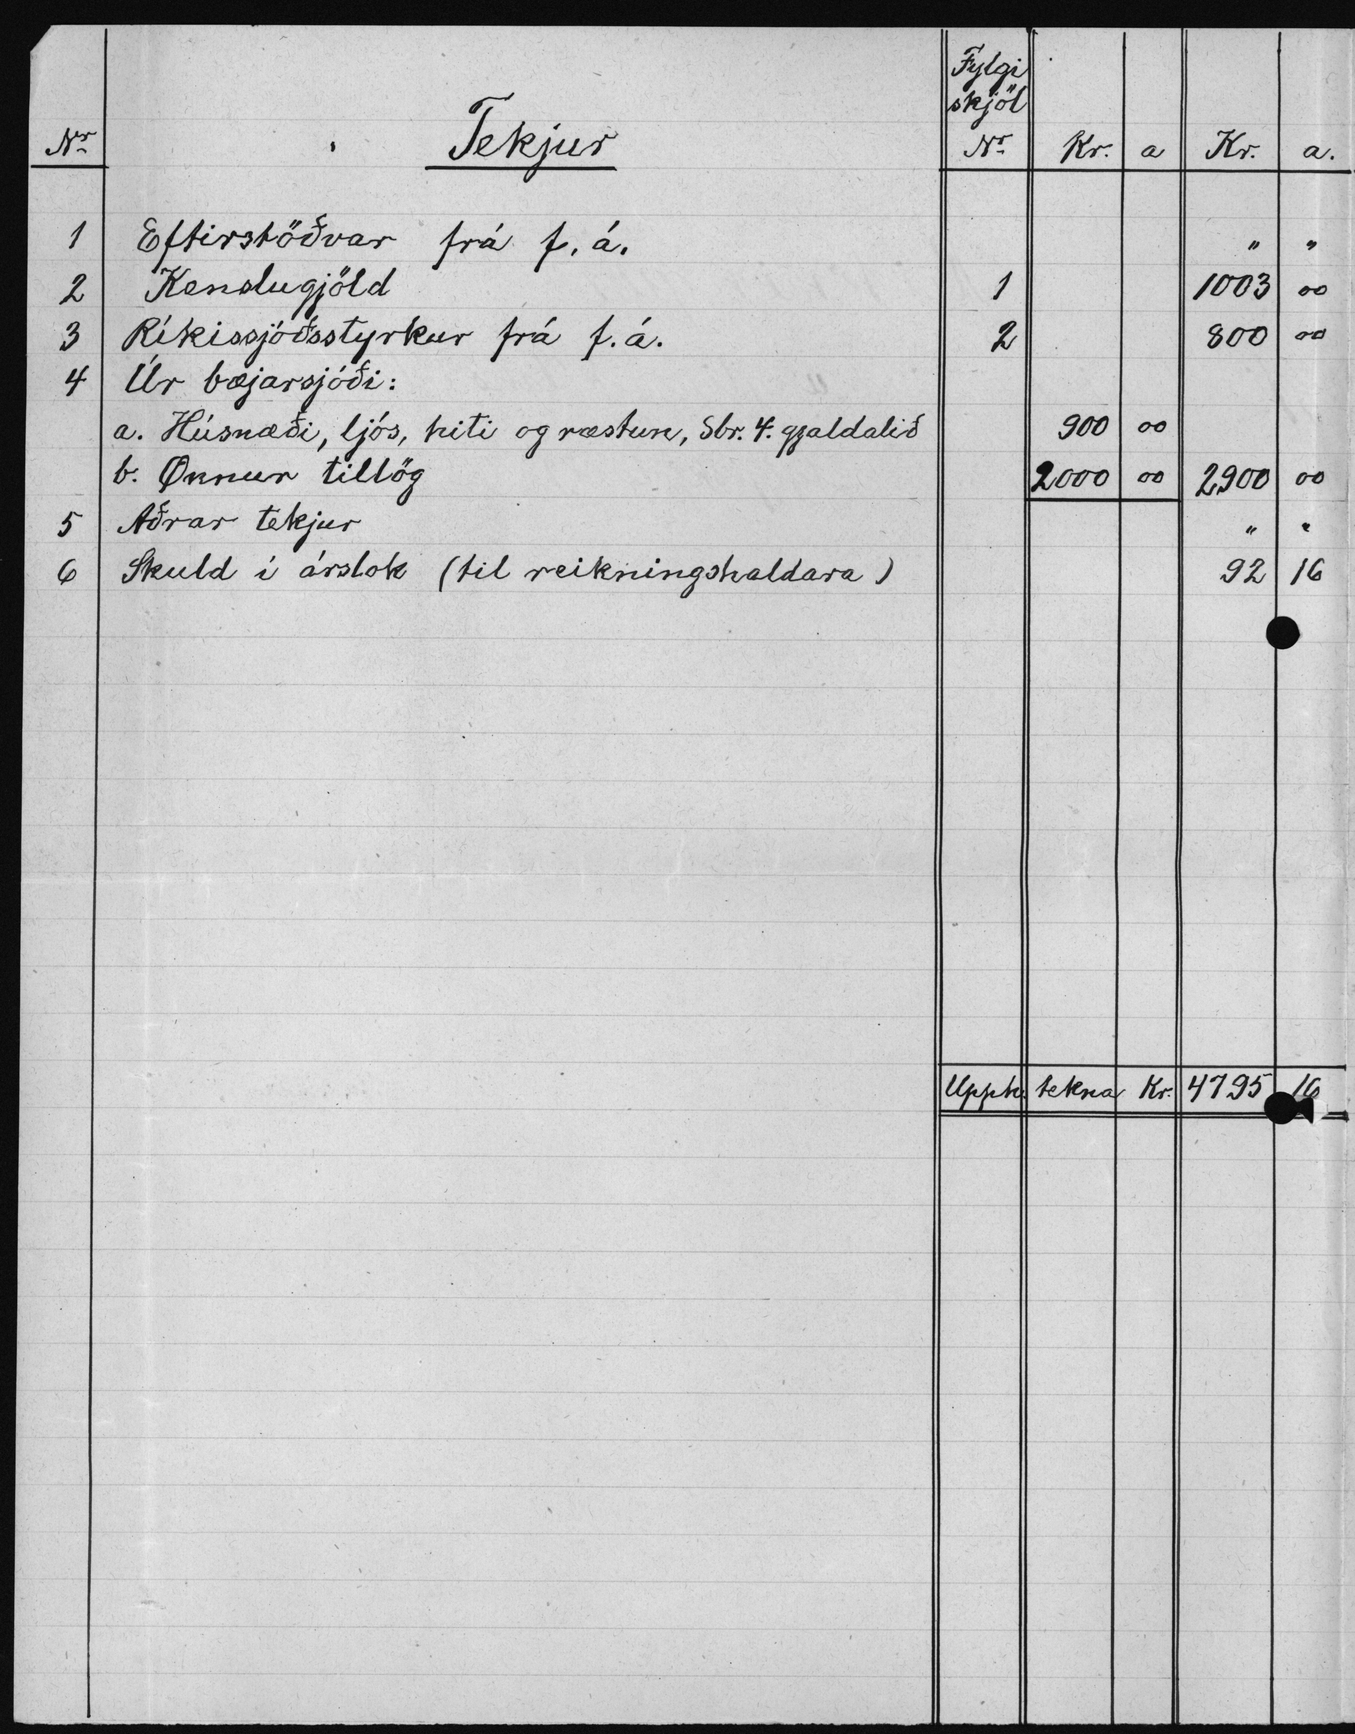 Fylgi
skjöl
Nr Tekjur Nr Kr. a Kr. a.
1 Eftirstöðvar frá f. á. " "
2 Kenslugjöld 1 1003 00
3 Ríkissjóðsstyrkur frá f. á. 2 800 00
4 Úr bæjarsjóði:
a. Húsnæði, ljós, hiti og ræstun, sbr. 4. gjaldalið 900 00
b. Önnur tillög 2000 00 2900 00
5 Aðrar tekjur " "
6 Skuld í árslok (til reikningshaldara) 92 16
Upph. tekna Kr. 4795 16